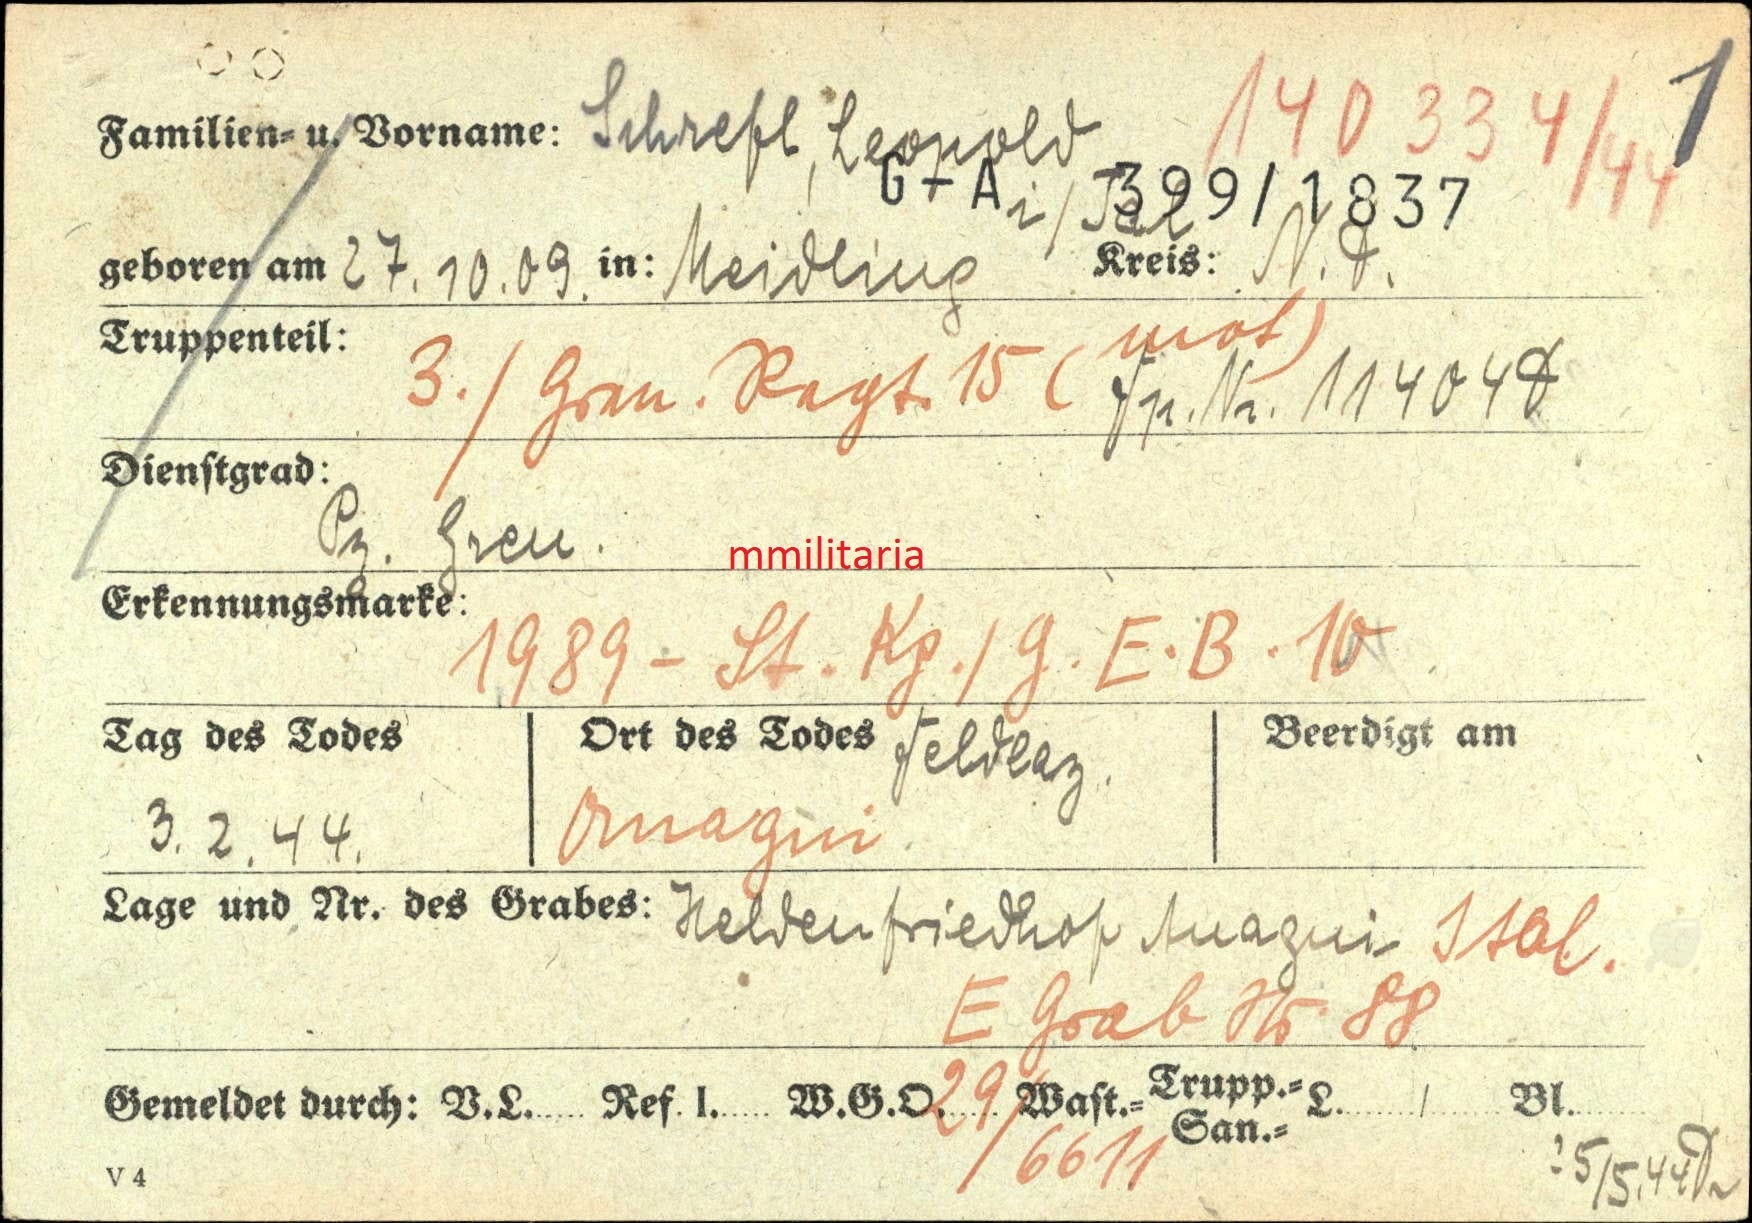 140334/44
1
Familien- u. Vorname: Schrefl, Leopold
G-A 399/1837
i/Tal
geboren am 27.10.09. in: Meidling Kreis: N.D.
Truppenteil: 3./Gren. Regt. 15 (mot)
Fp. Nr. 11404
Dienstgrad:
Pz. Gren.
mmilitaria
Erkennungsmarke:
1989 - St. Kp./G.E.B. 10
Tag des Todes Ort des Todes Feldlaz. Beerdigt am
3.2.44. Anagni
Lage und Nr. des Grabes: Heldenfriedhof Anagni Ital.
E Grab Nr 88
Gemeldet durch: V.L. Ref. I. W.G.O. Wast.= Trupp.= San.= L. / Bl.
29/6611
V 4
5/5.44